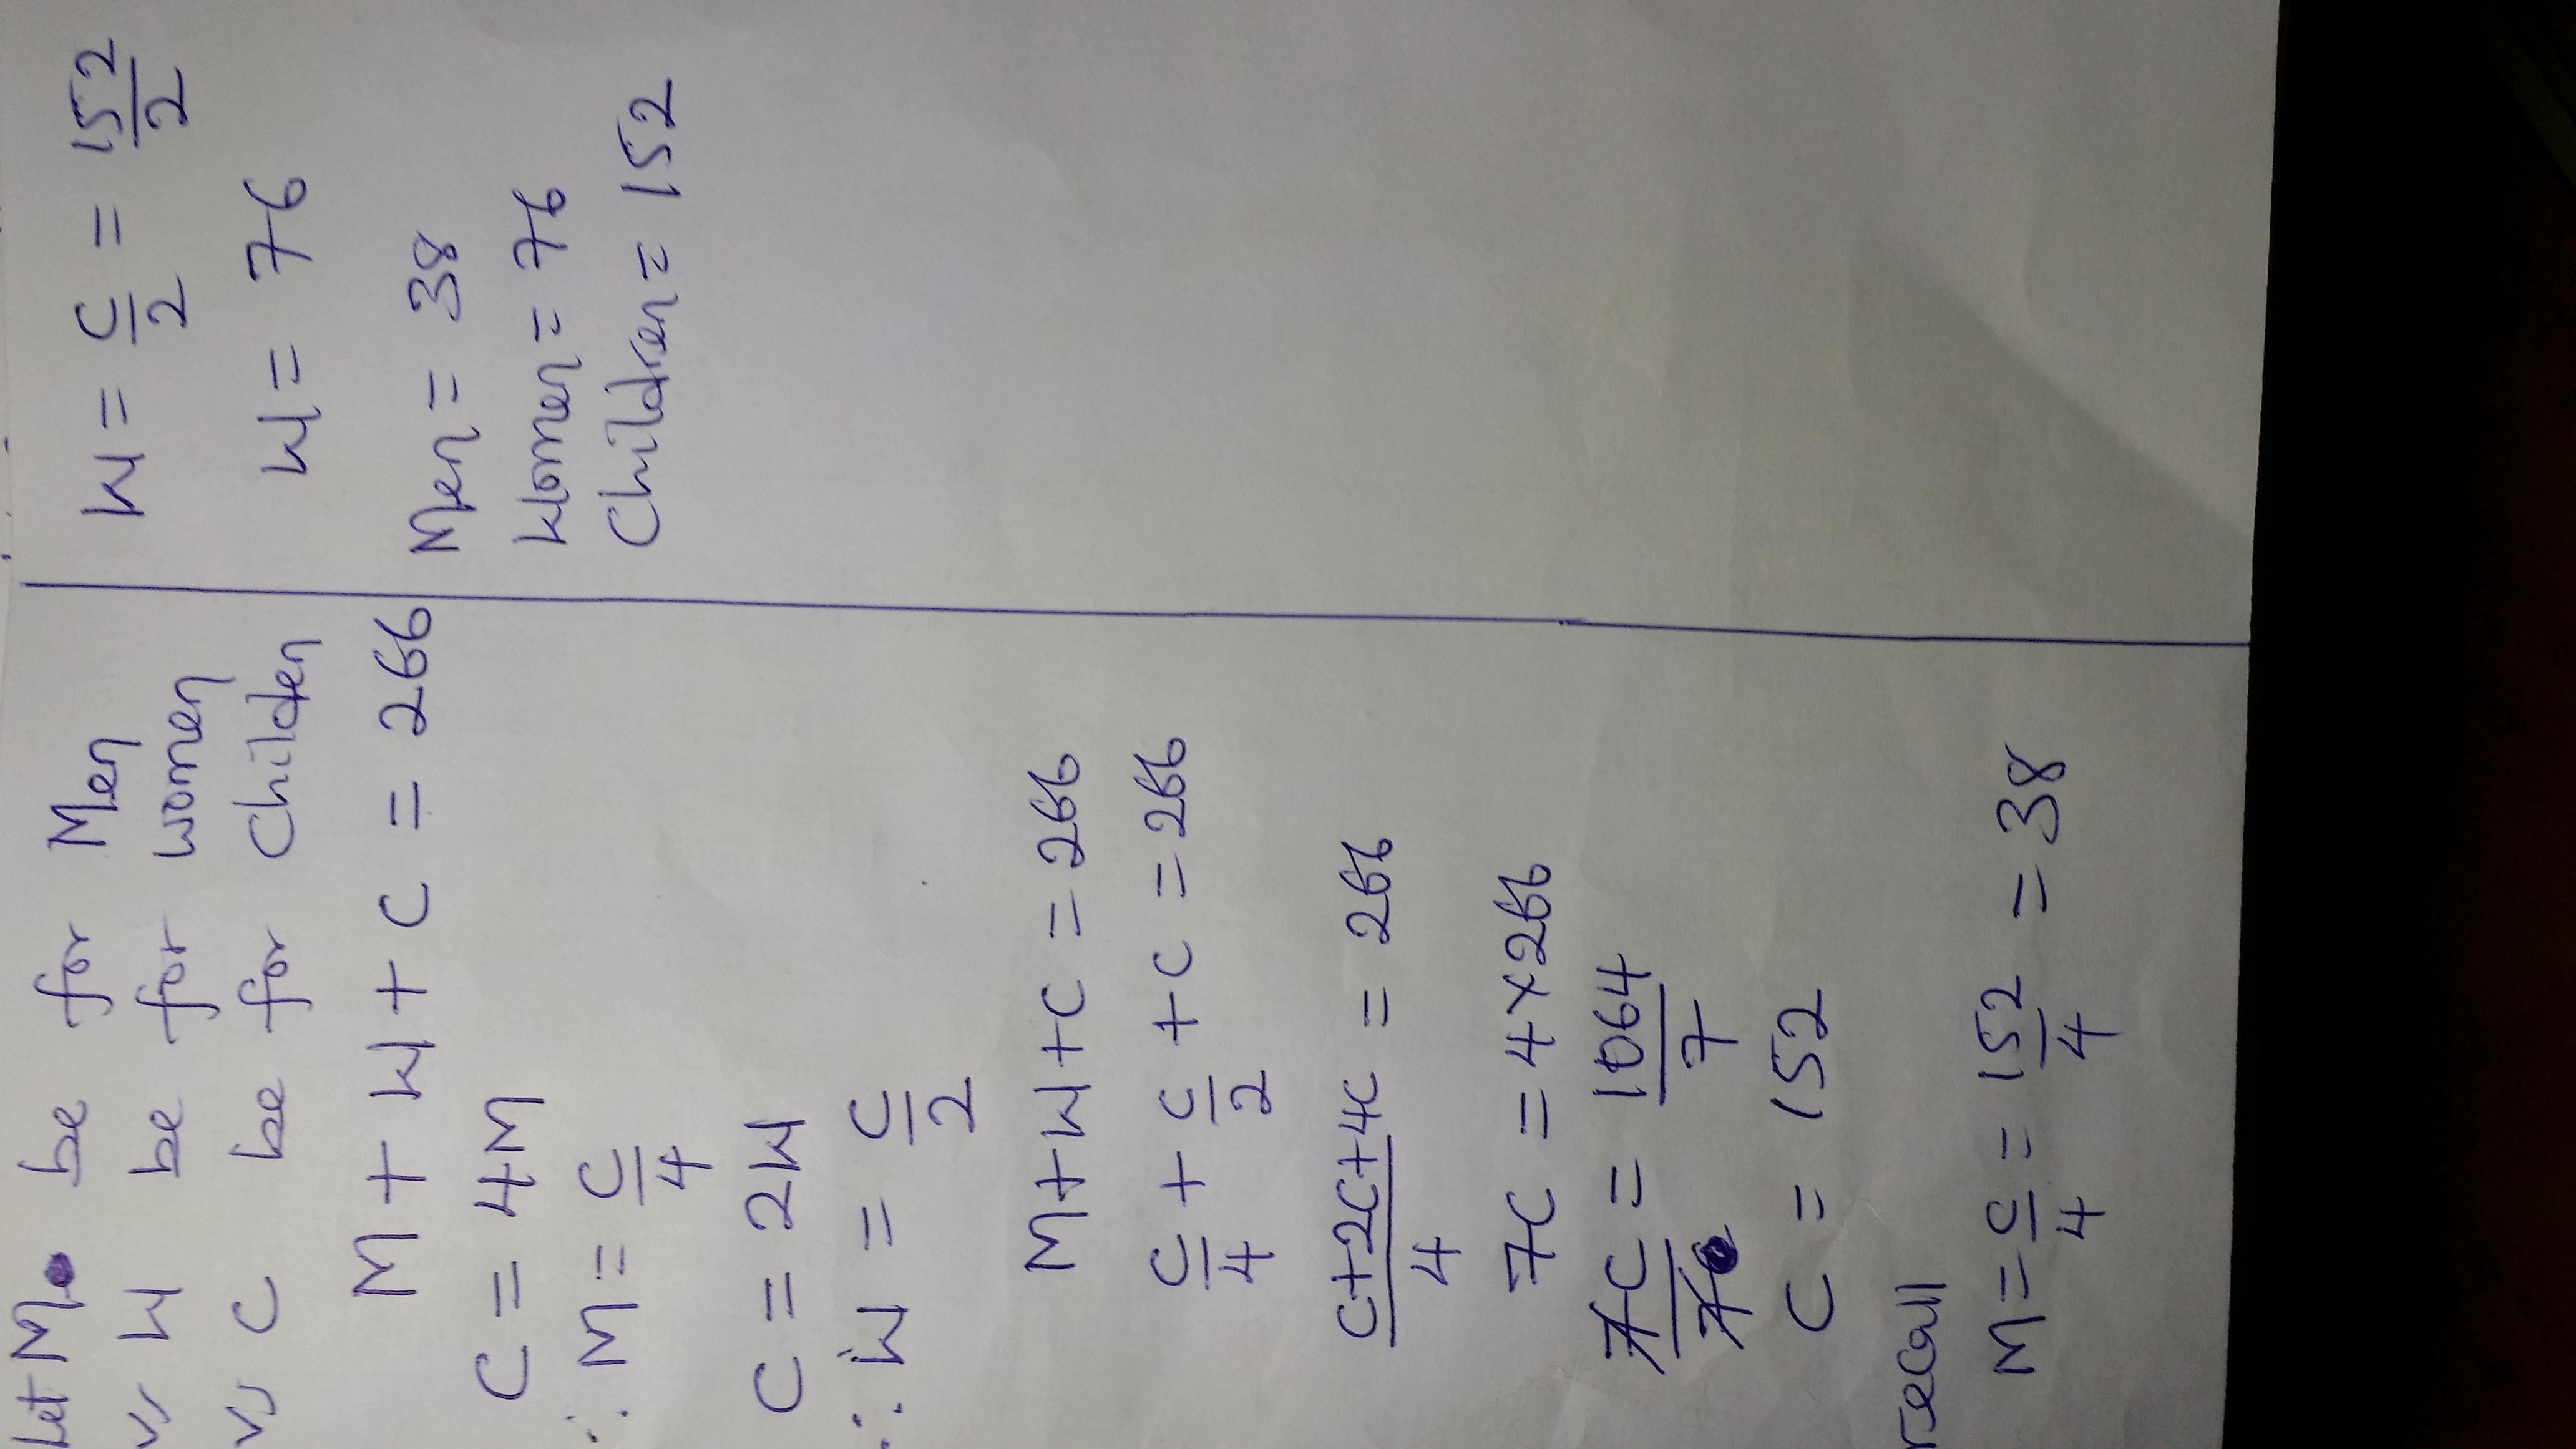 Let M be for Men
" W be for women
" C be for Childen
M + W + C = 266
C = 4M
∴ M = C/4
C = 2W
∴ W = C/2
M+W+C = 266
C/4 + C/2 + C = 266
C+2C+4C/4 = 266
7C = 4×266
7C/7 = 1064/7
C = 152
recall
M = C/4 = 152/4 = 38
W = C/2 = 152/2
W = 76
Men = 38
Women = 76
Children = 152